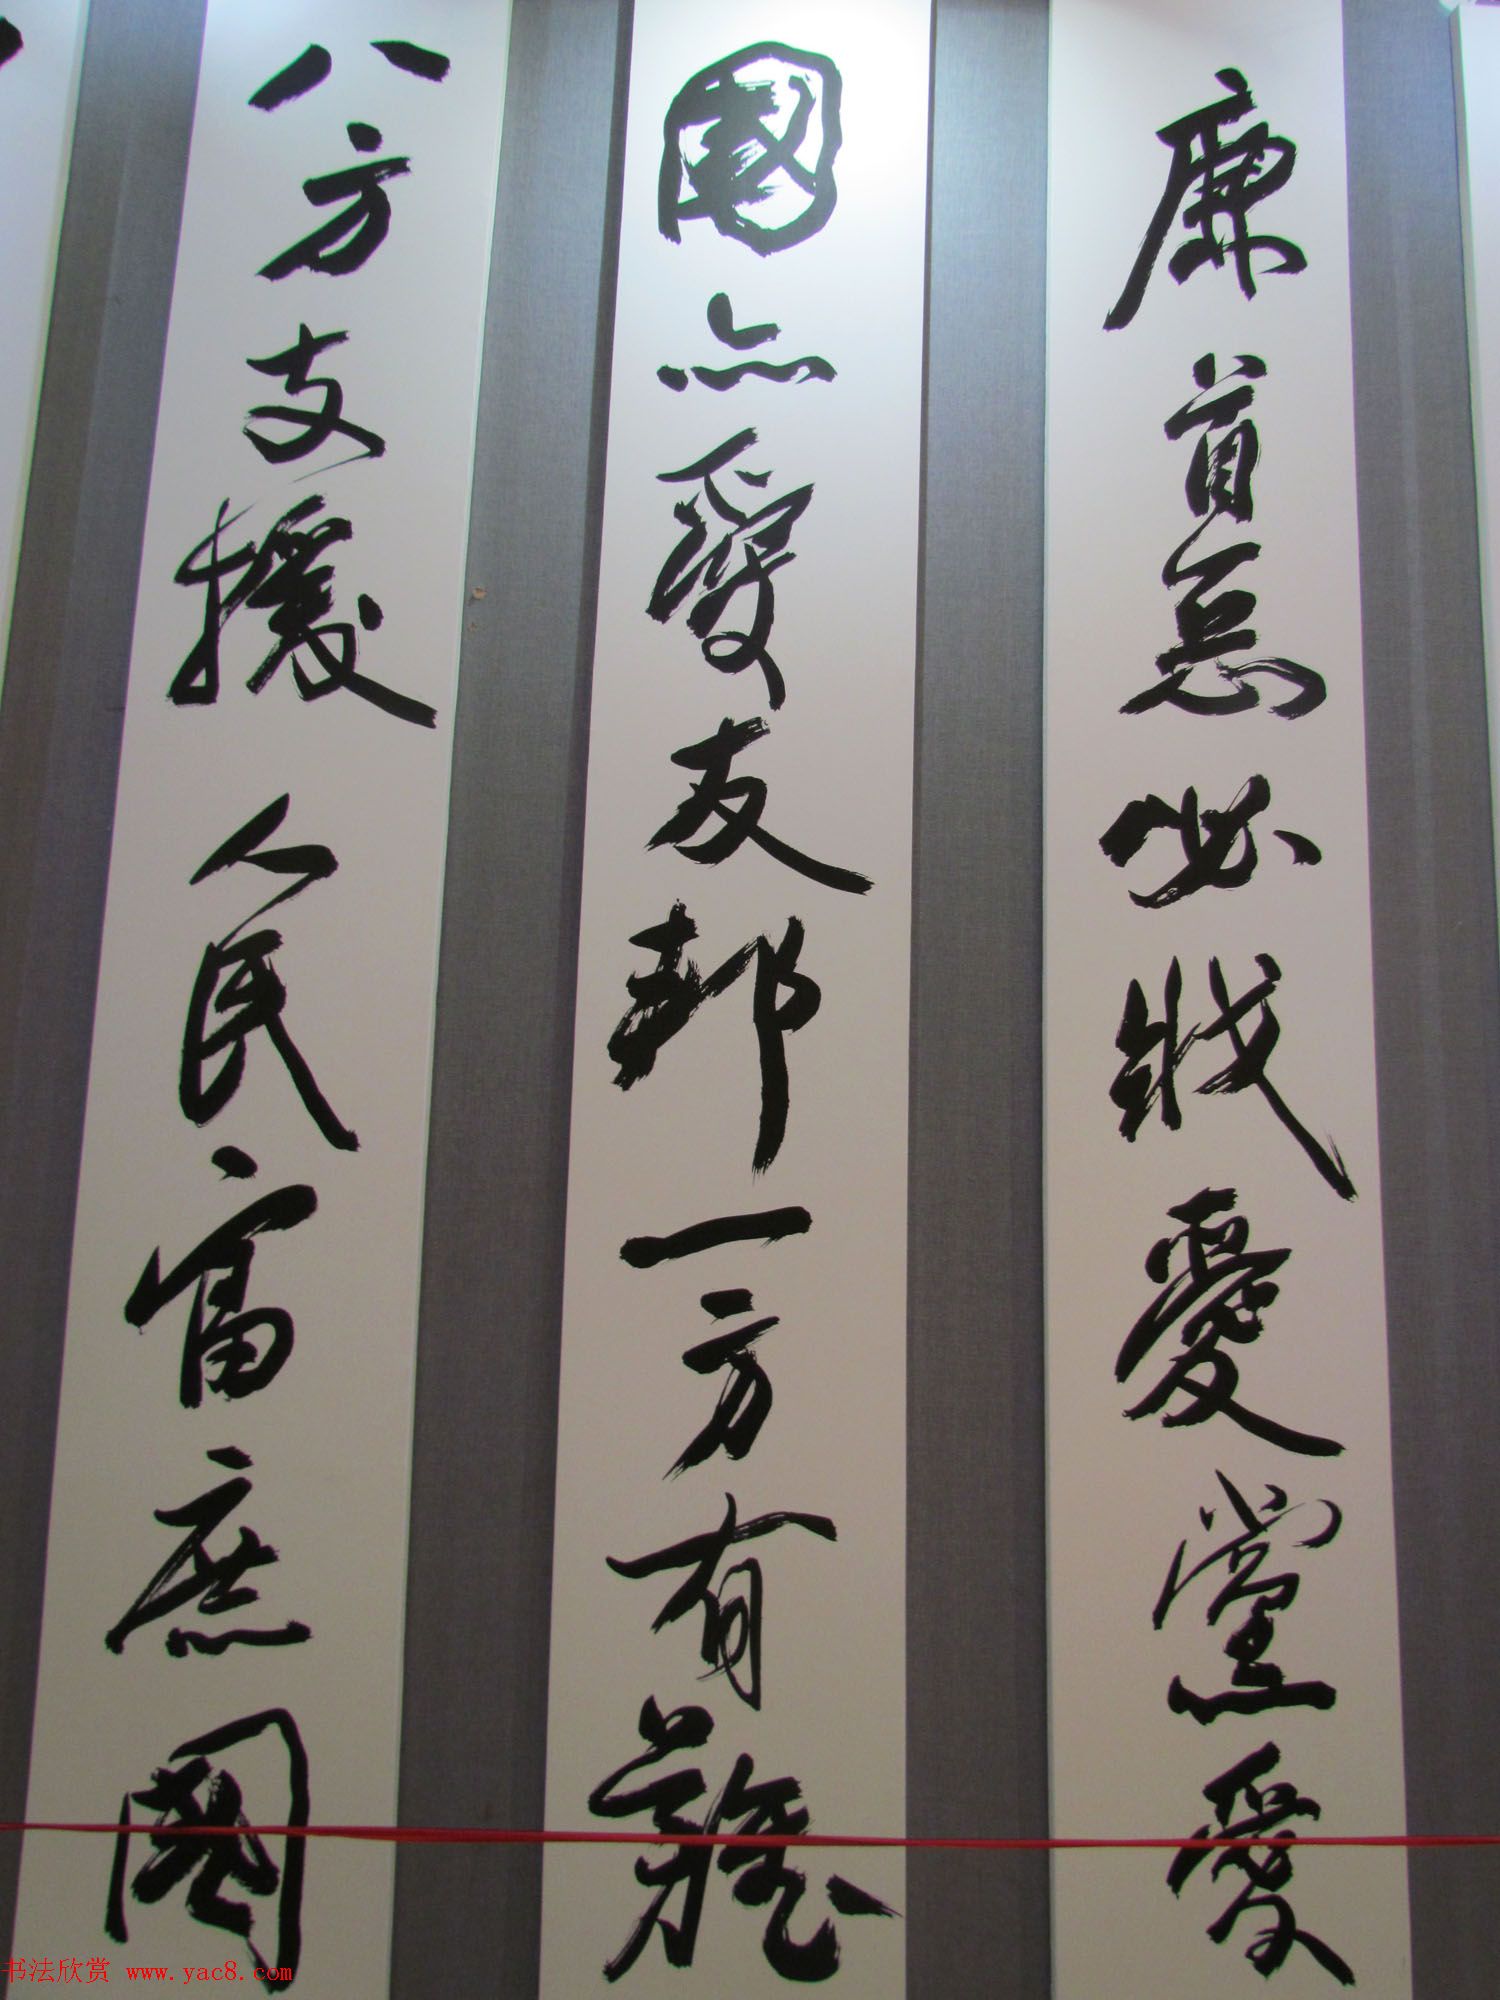 廉首惡必戕愛黨愛
國亦愛友邦一方有難
八方支援人民富庶國
书法欣赏 www.yac8.com